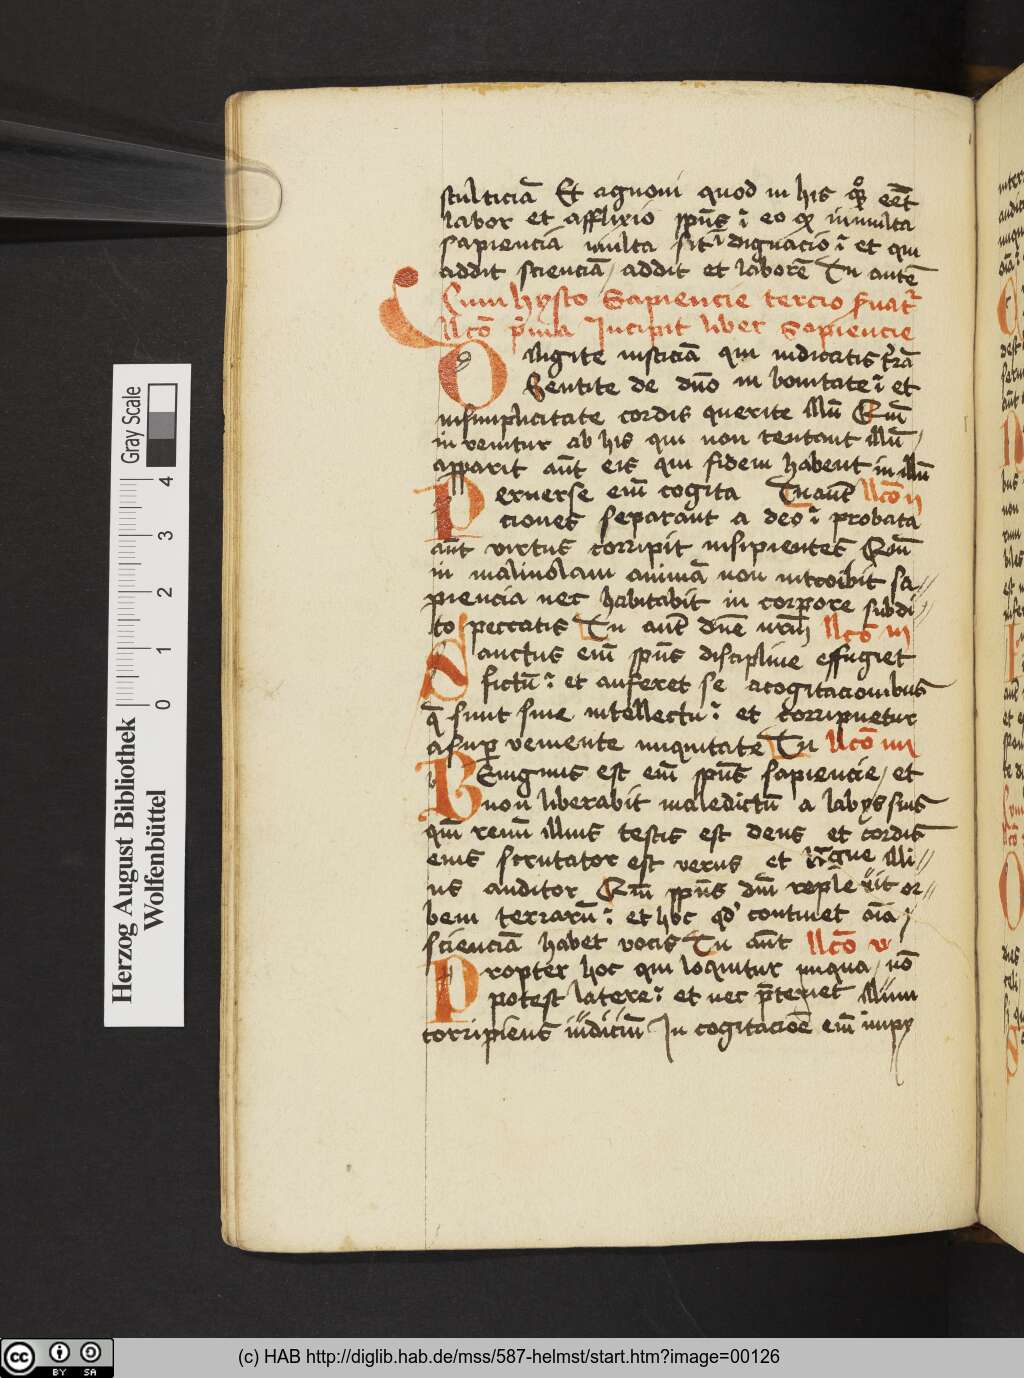 stulticiā Et agnoui quod in his qͦꝫ eēt
labor et afflixio sp̄us ī eo ꝙ in multa
sapiencia multa sit īdignacio ī et qui
addit scienciā addit et laborē Tu autē
Cum hysto Sapiencie tercio s̄uat᷑
llcō p̄ma Incipit liber Sapiencie
Diligite iusticiā qui iudicatis t̄rā
Sentite de dn̄o in bonitate ī et
insimplicitate cordis querite illū Qm̄
in venitur ab his qui non tentant illū
apparit aūt eis qui fidem habent in illū
Peruerse em̄ cogita Tu aūt llcō ii
ciones separant a deo ī probata
aūt virtus corripit insipientes Qm̄
in maliuolam animā non introibit sa
piencia nec habitabit in corpore subdi
to peccatis Tu aūt dn̄e llcō iii
Sanctus em̄ sp̄us discipline effugiet
fictū ī et auferet se acogitacionibus
q̄ sunt sine intellectu ī et corripietur
asup̄ veniente iniquitate Tu llcō iiii
BEnignus est em̄ sp̄us sapiencie et
non liberabit maledictū a labys suis
qm̄ renū illius testis est deus et cordis
eius scrutator est verus et līgue illi
us auditor Qm̄ sp̄us dn̄i repleuit or
bem terrarū ī et hoc qd' continet oīa
scienciā habet vocis Tu aūt llcō v
Propter hoc qui loquitur iniqua nō
potest latere ī et nec p̄teriet illum
corripiens iudiciū In cogitacioē em̄ impy
Herzog August Bibliothek
Wolfenbüttel
Gray Scale
0 1 2 3 4
cc BY SA
(c) HAB http://diglib.hab.de/mss/587-helmst/start.htm?image=00126